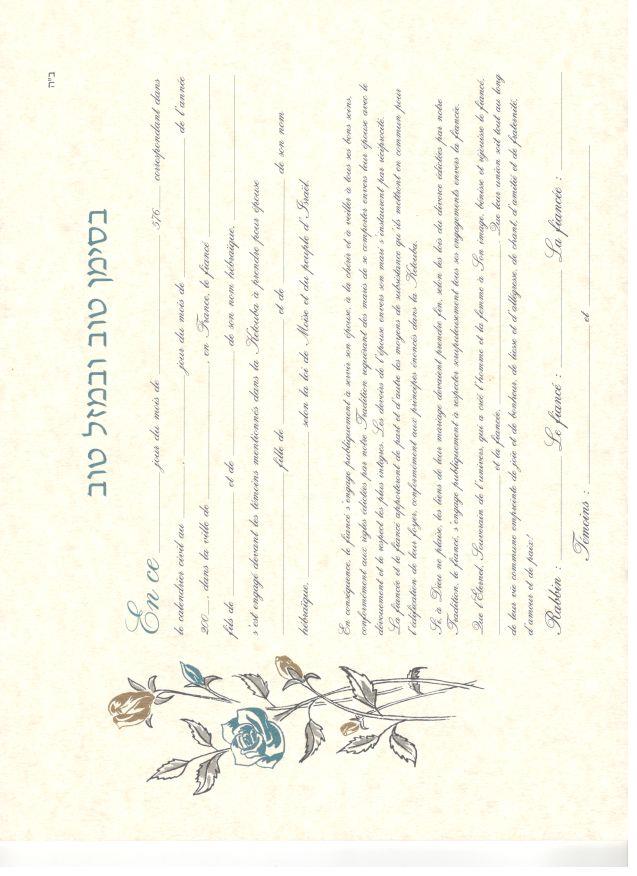 ב"ה
בסימן טוב ובמזל טוב
En ce ______ jour du mois de ______ 576__ correspondant dans
le calendrier civil au ______, ______ jour du mois de ______ de l'année
200__, dans la ville de ______, en France, le fiancé ______
fils de ______ et de ______ de son nom hébraïque, ______
s'est engagé devant les témoins mentionnés dans la Ketouba à prendre pour épouse
______ fille de ______ et de ______ de son nom
hébraïque, ______ selon la loi de Moïse et du peuple d'Israël.
En conséquence, le fiancé s'engage publiquement à servir son épouse, à la chérir et à veiller à tous ses bons soins,
conformément aux règles édictées par notre Tradition requérant des maris de se comporter envers leur épouse avec le
dévouement et le respect les plus intègres. Les devoirs de l'épouse envers son mari s'instaurent par réciprocité.
La fiancée et le fiancé apportent de part et d'autre les moyens de subsistance qu'ils mettront en commun pour
l'édification de leur foyer, conformément aux principes énoncés dans la Ketouba.
Si, à Dieu ne plaise, les liens de leur mariage devaient prendre fin, selon les lois du divorce édictées par notre
Tradition, le fiancé s'engage publiquement à respecter scrupuleusement tous ses engagements envers la fiancée.
Que l'Eternel, Souverain de l'univers, qui a créé l'homme et la femme à Son image, bénisse et réjouisse le fiancé,
______ et la fiancée, ______. Que leur union soit tout au long
de leur vie commune empreinte de joie et de bonheur, de liesse et d'allégresse, de chant, d'amitié et de fraternité,
d'amour et de paix!
Rabbin : ______ Le fiancé : ______ La fiancée : ______
Temoins : ______ et ______